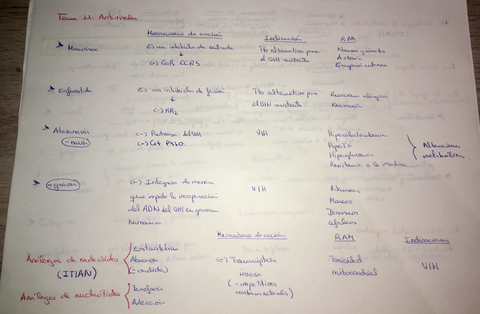 Tema 11: Antivirales
Mecanismo de acción Indicación RAM
Maraviroc Es un inhibidor de entrada Tto alternativo para Náuseas y vómitos
(-) CoR CCR5 el VIH resistente Astenia
Erupción cutánea
Enfuvirtida Es un inhibidor de fusión Tto alternativo para Reacciones alérgicas
(-) HR2 el VIH resistente
Atazanavir (-) Proteasa del VIH VIH Hipercolesterolemia
-navir (-) Cit P450. Alteraciones
Hiperglucemia metabólicas
Resistencia a la insulina
-gravir (-) Integrasa de manera VIH Náuseas
que impide la incorporación Mareos
del ADN del VIH en genoma Diarreas
humano Cefaleas
Mecanismo de acción RAM Indicaciones
Análogos de nucleósidos Emtricitabina
(ITIAN) Abacavir (-) Transcriptasa Toxicidad VIH
inversa mitocondrial
(competitivos
Análogos de nucleótidos Tenofovir
Adefovir